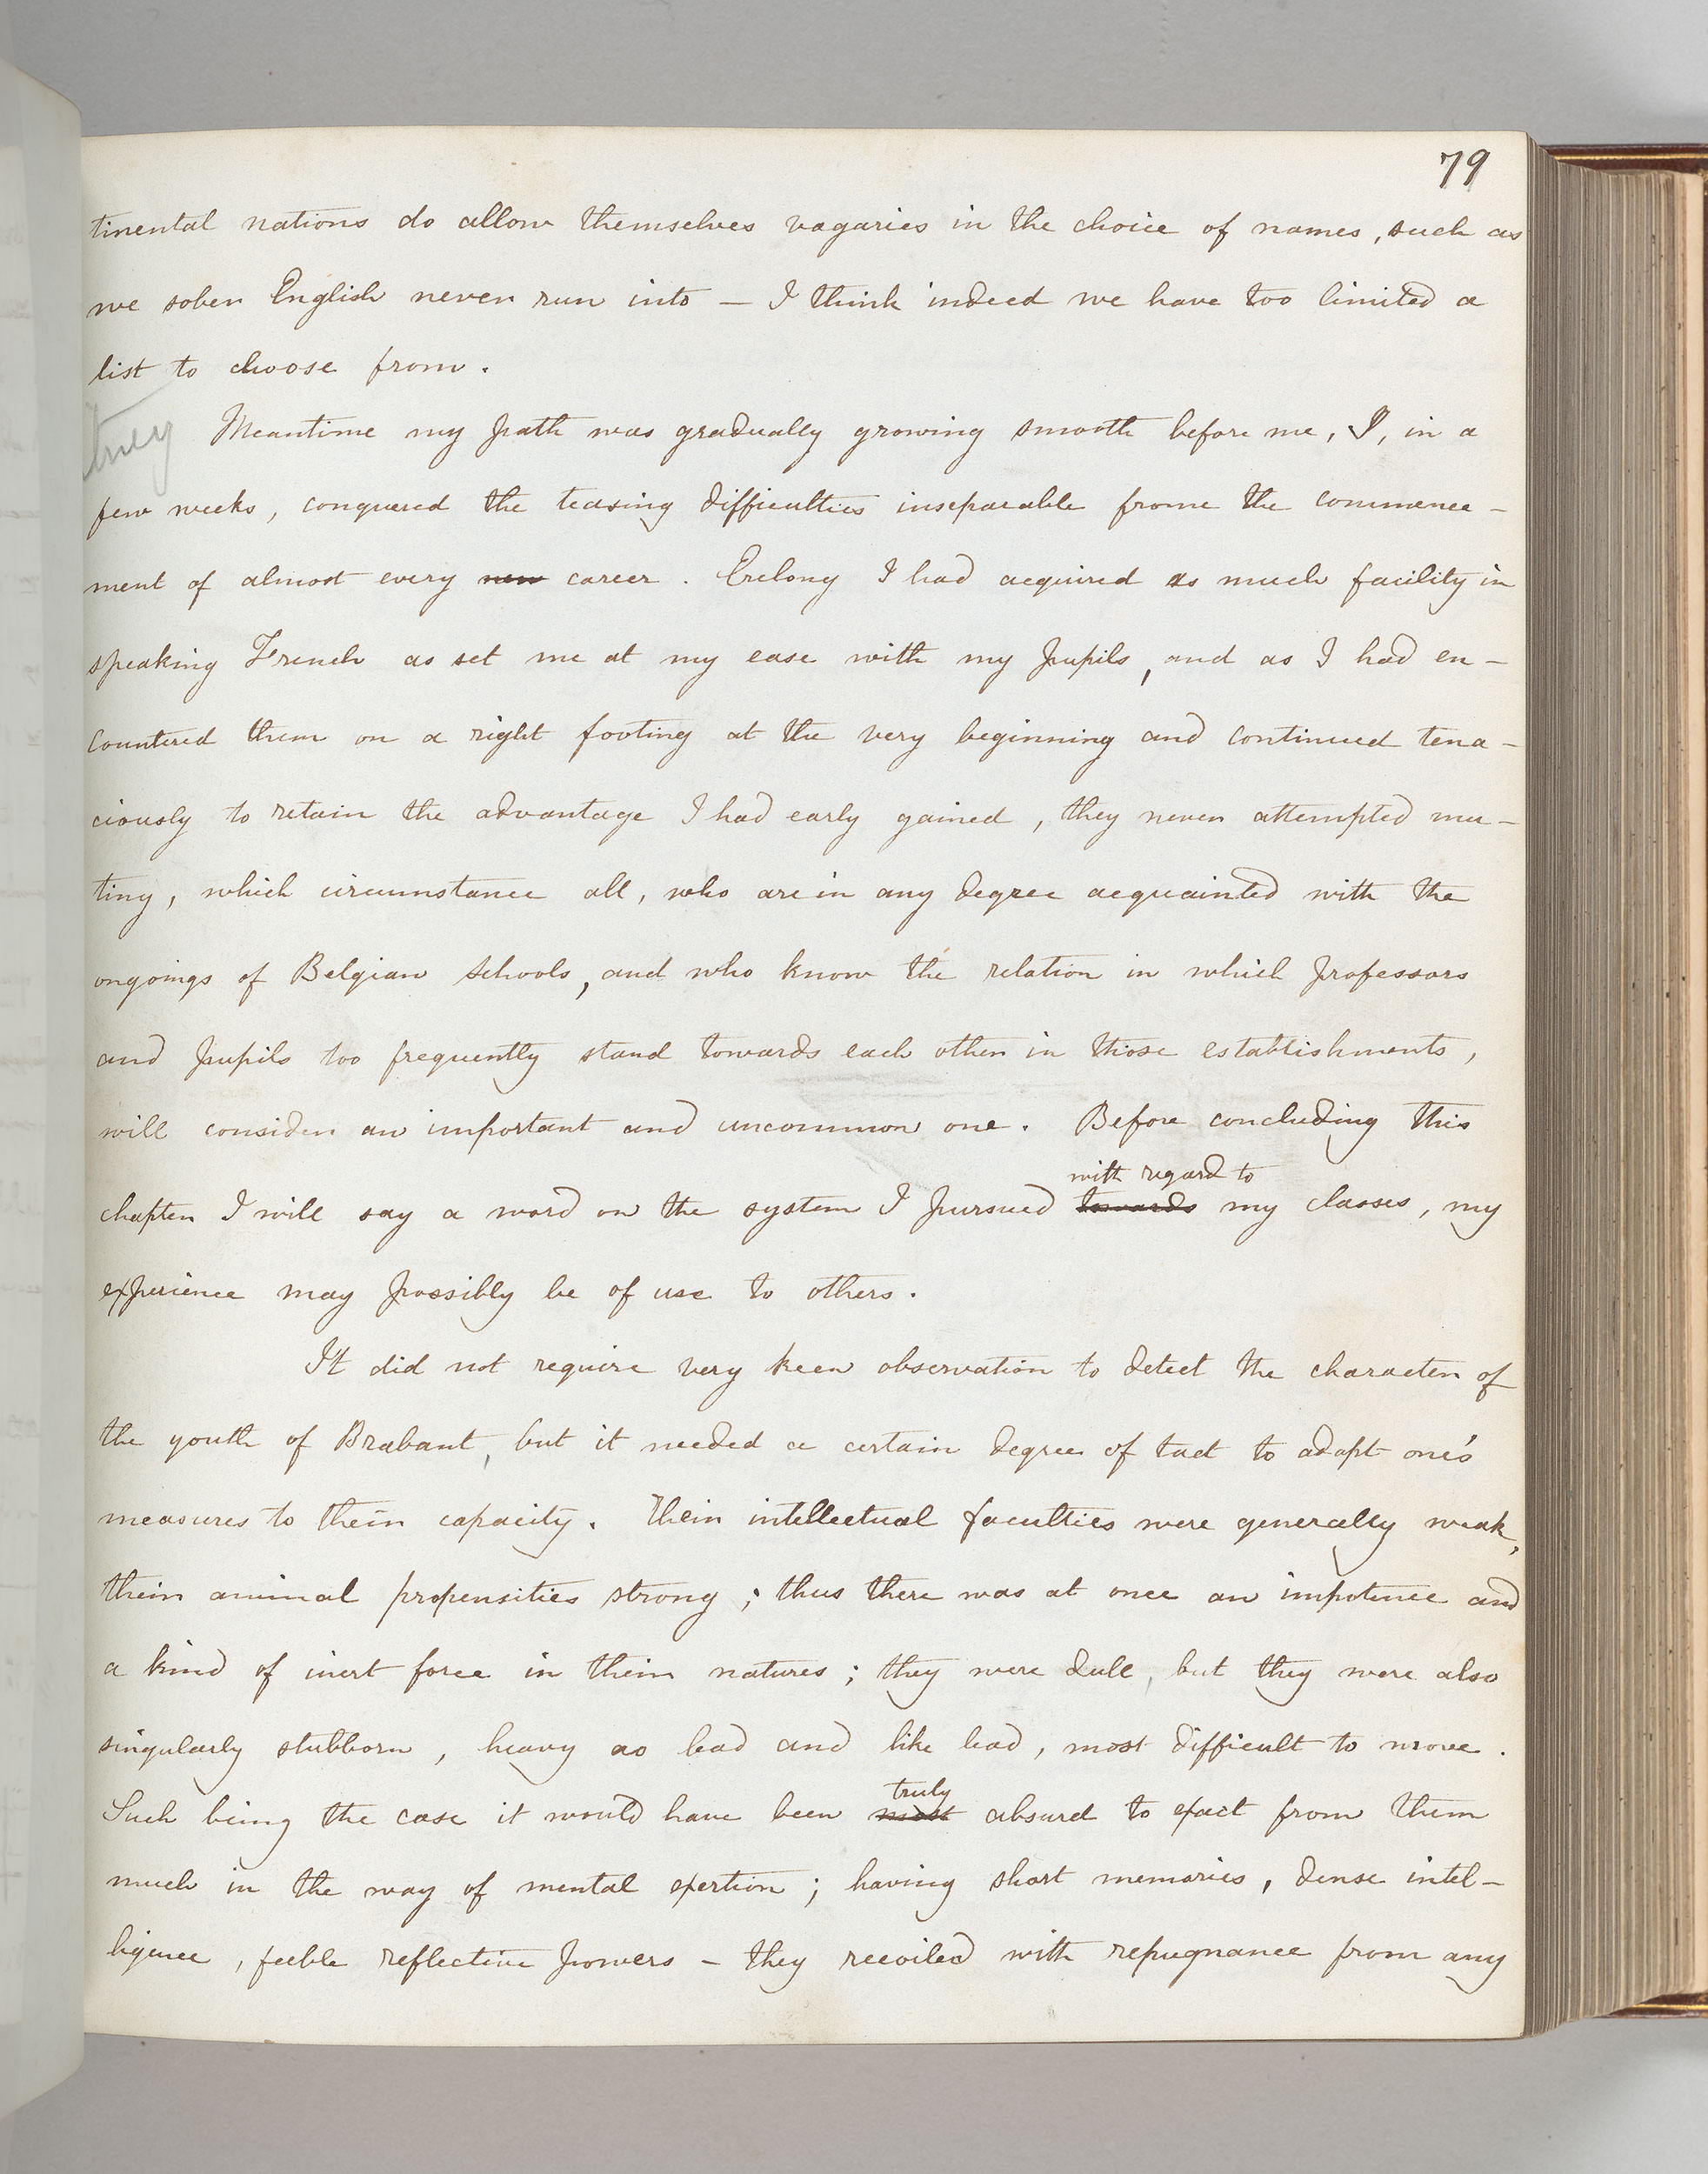 79
tinental nations do allow themselves vagaries in the choice of names, such as
we sober English never run into — I think indeed we have too limited a
list to choose from.
Meantime my path was gradually growing smooth before me, I, in a
few weeks, conquered the teasing difficulties inseparable frome the commence-
ment of almost every new career. Erelong I had acquired as much facility in
speaking French as set me at my ease with my pupils, and as I had en-
countered them on a right footing at the very beginning and continued tena-
ciously to retain the advantage I had early gained, they never attempted mu-
tiny, which circumstance all, who are in any degree acquainted with the
ongoings of Belgian schools, and who know the relation in which professors
and pupils too frequently stand towards each other in those establishments,
will consider an important and uncommon one. Before concluding this
with regard to
chapter I will say a word on the system I pursued towards my classes, my
experience may possibly be of use to others.
It did not require very keen observation to detect the character of
the youth of Brabant, but it needed a certain degree of tact to adapt one's
measures to their capacity. Their intellectual faculties were generally weak,
their animal propensities strong; thus there was at once an impotence and
a kind of inert force in their natures; they were dull, but they were also
singularly stubborn, heavy as lead and like lead, most difficult to move.
truly
Such being the case it would have been most absurd to exact from them
much in the way of mental exertion; having short memories, dense intel-
ligence, feeble reflective powers — they recoiled with repugnance from any